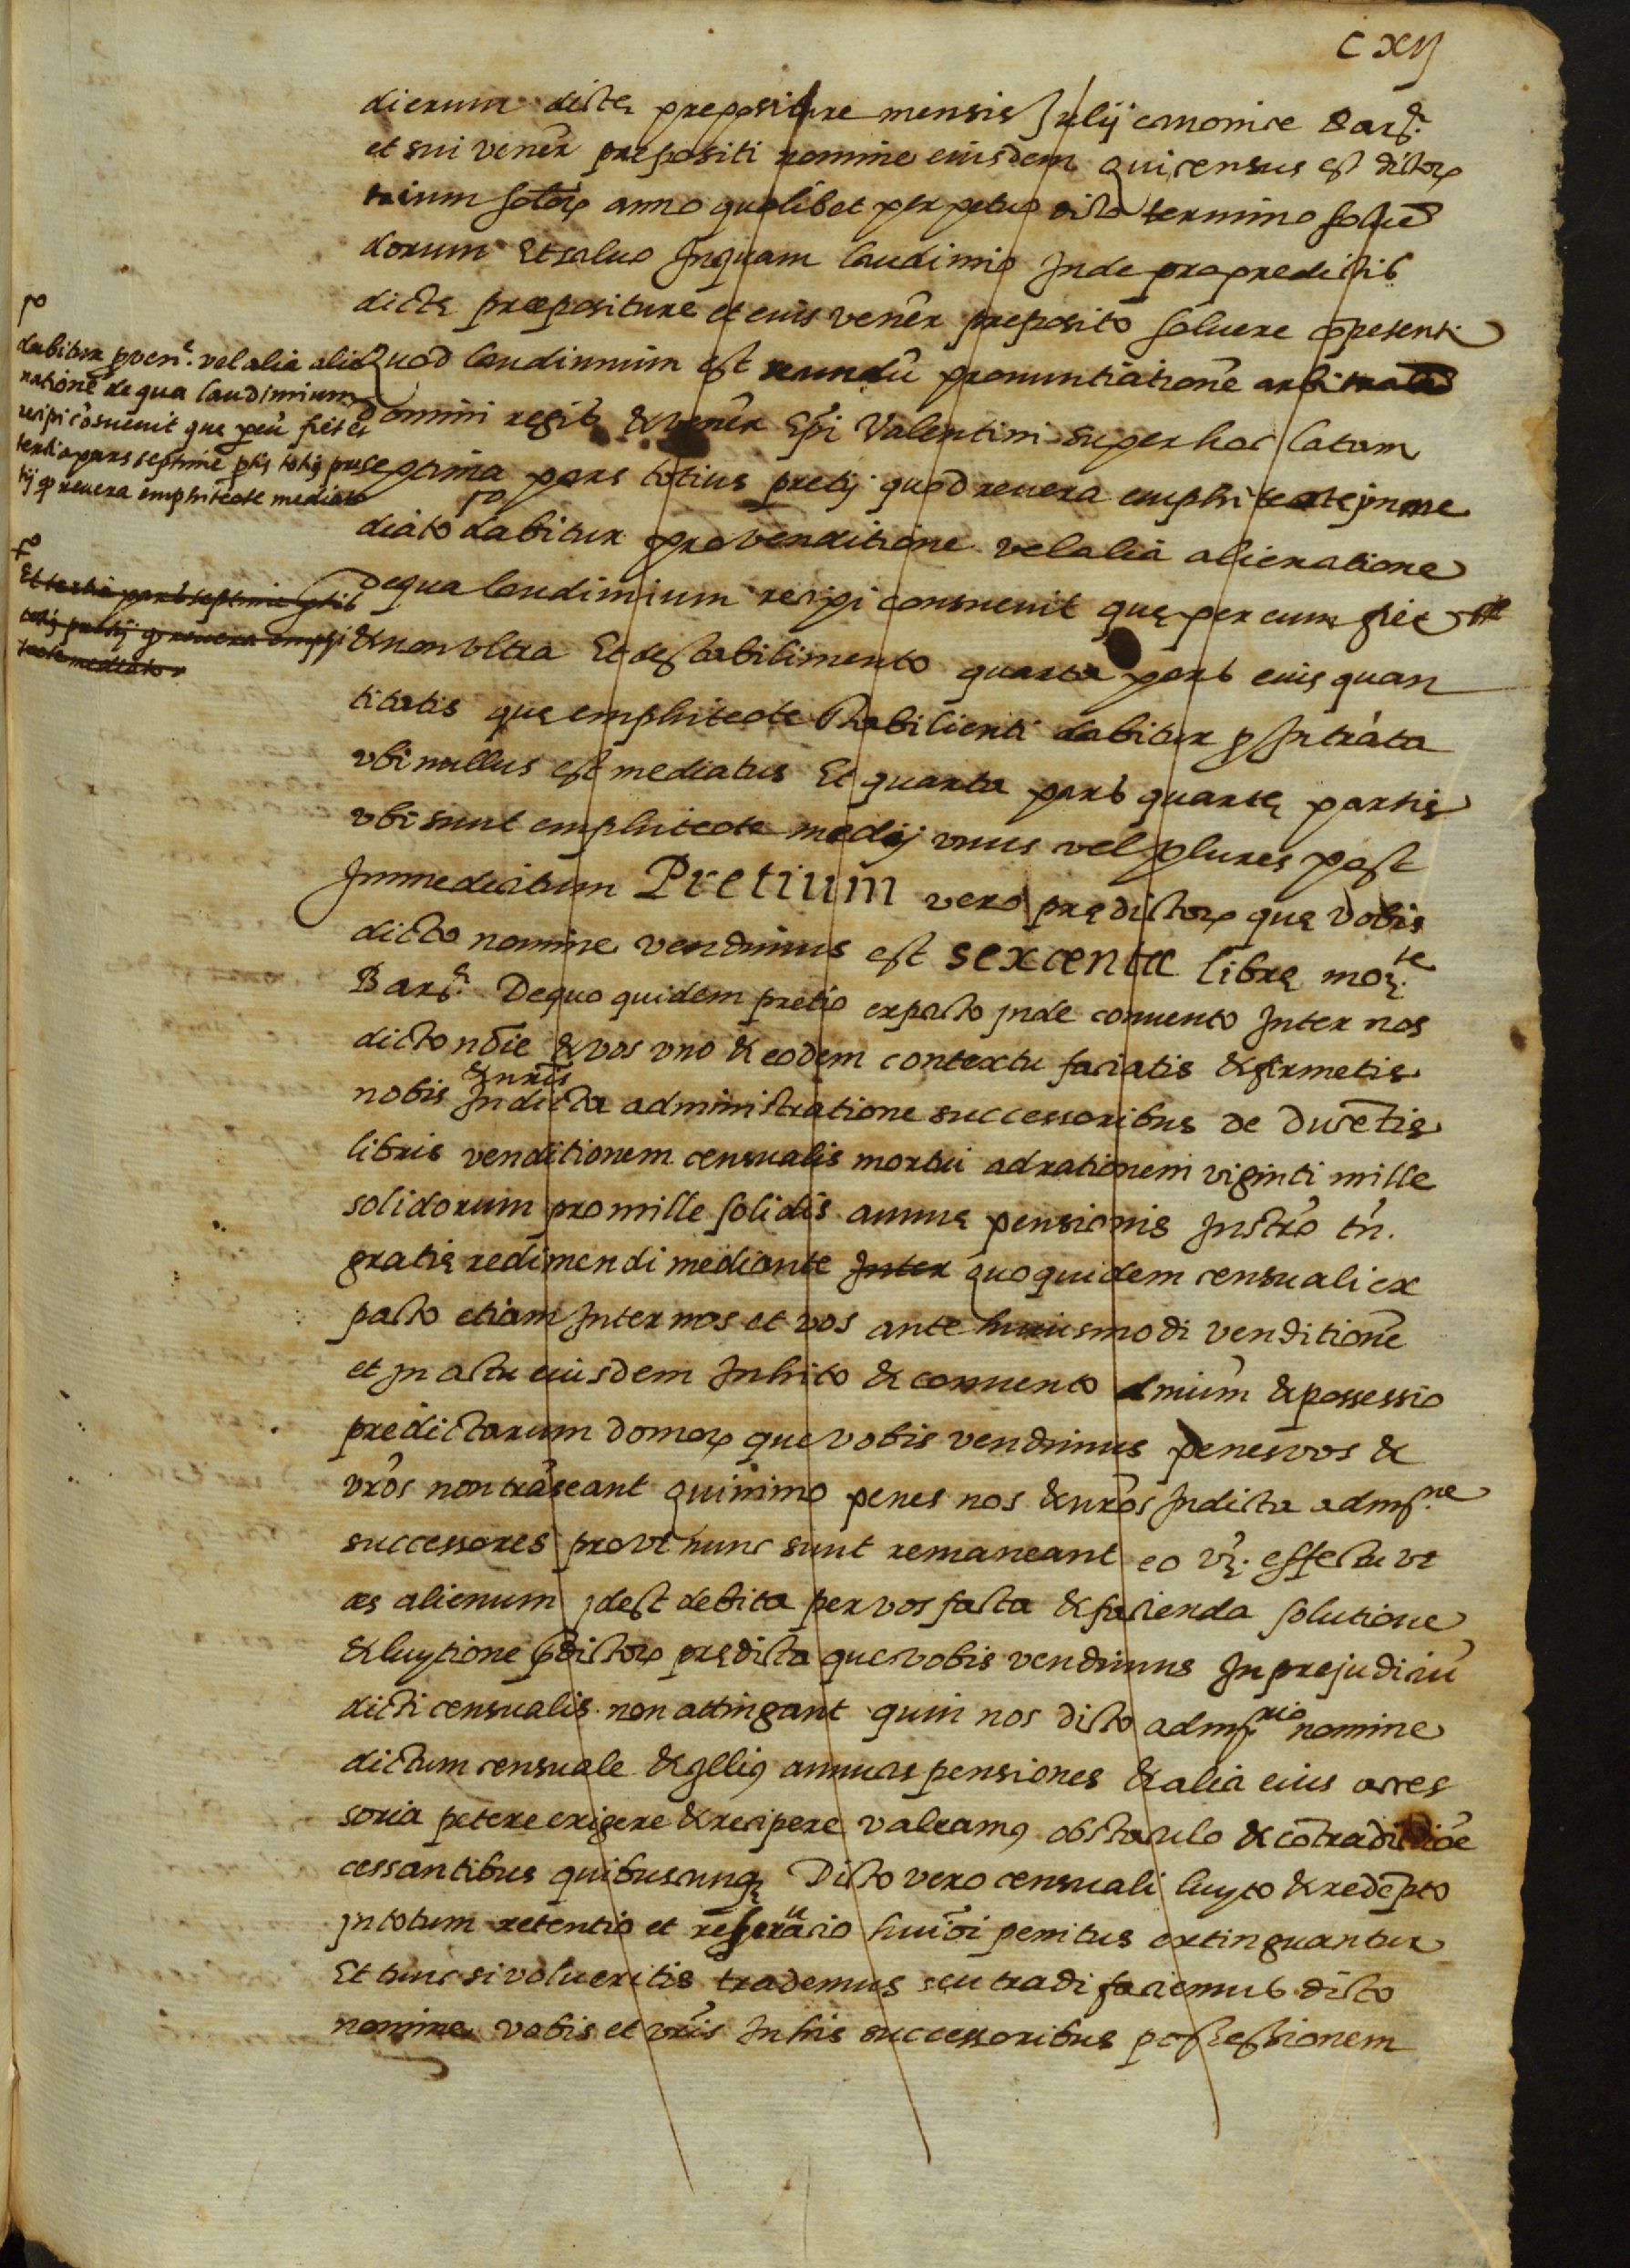 CXIJ
dierum dictę prepositure mensis Julij canonice Barſᵉ
et sui venēr prepositi nomine eiusdem qui census est dictoꝝ
trium solidoꝝ anno quolibet perpetuo dicto termino soluē
dorum Et saluo Jnquam laudimio Jnde pro predictis
dictę præpositure et eius venēr preposito soluere cōpetenti
Quod laudimium est secundū pronuntiationē arbitralē
domini regis & venēr Epī Valentini super hoc latam
septima pars totius pretij quod reuera emphiteote jmme
diato dabitur pro venditione vel alia alienatione
De qua laudimium recipi consueuit quę per eum fiet
& non vltra Et de stabilimento quarta pars eius quan
titatis quę emphiteote stabilienti dabitur ꝑ Jntrata
vbi nullus est mediatus Et quarta pars quartę partis
vbi sunt emphiteote medij vnus vel plures post
Jmmediatum Pretium vero prędictoꝝ quę vobis
dicto nomine vendimus est sexcentæ librę moꝫ.te
Barſᵉ. De quo quidem pretio ex pacto jnde conuento Jnter nos
dicto nōie & vos vno & eodem contextu faciatis & firmetis
nobis & nrīs Jn dicta administratione successoribus de ducētis
libris venditionem censualis mortui ad rationem viginti mille
solidorum pro mille solidis annuę pensionis Jnstrō tn̄.
gratię redimendi mediante Jnter quo quidem censuali ex
pacto etiam Jnter nos et vos ante huiusmodi venditionē
et jn actu eiusdem Jnhito & conuento dmiūm & possessio
predictarum domoꝝ que vobis vendimus penes vos &
vrōs non trāseant quinimo penes nos & nrōs Jn dicta admſ.ne
successores prout nunc sunt remaneant eo vꝫ. effectu vt
æs alienum jdest debita per vos facta & facienda solutione
& luytione p̄dictoꝝ prędicta que vobis vendimus Jn prejudiciū
dicti censualis non attingant quin nos dicto admſ.rio nomine
dictum censuale & jllius annuas pensiones & alia eius acces
soria petere exigere & recipere valeamꝰ obstaculo & cōtradictiōe
cessantibus quibuscunqꝫ Dicto vero censuali luyto & redēpto
jn totum retentio et reseruacio huiōi penitus extinguantur
Et tunc si volueritis trademus seu tradi faciemus dicto
nomine vobis et vrīs Jn his successoribus possessionem
dabitur ꝓ ven.ᵉ vel alia alie
natione de qua laudimium
recipi cōsueuit quę ꝑ eū fiet et
tertia pars septime ꝑtis totiꝰ pre
tij ꝙ reuera emphiteote mediato
Et tertia pars septime ꝑtis
totiꝰ pretij ꝙ reuera emphi
teote mediato